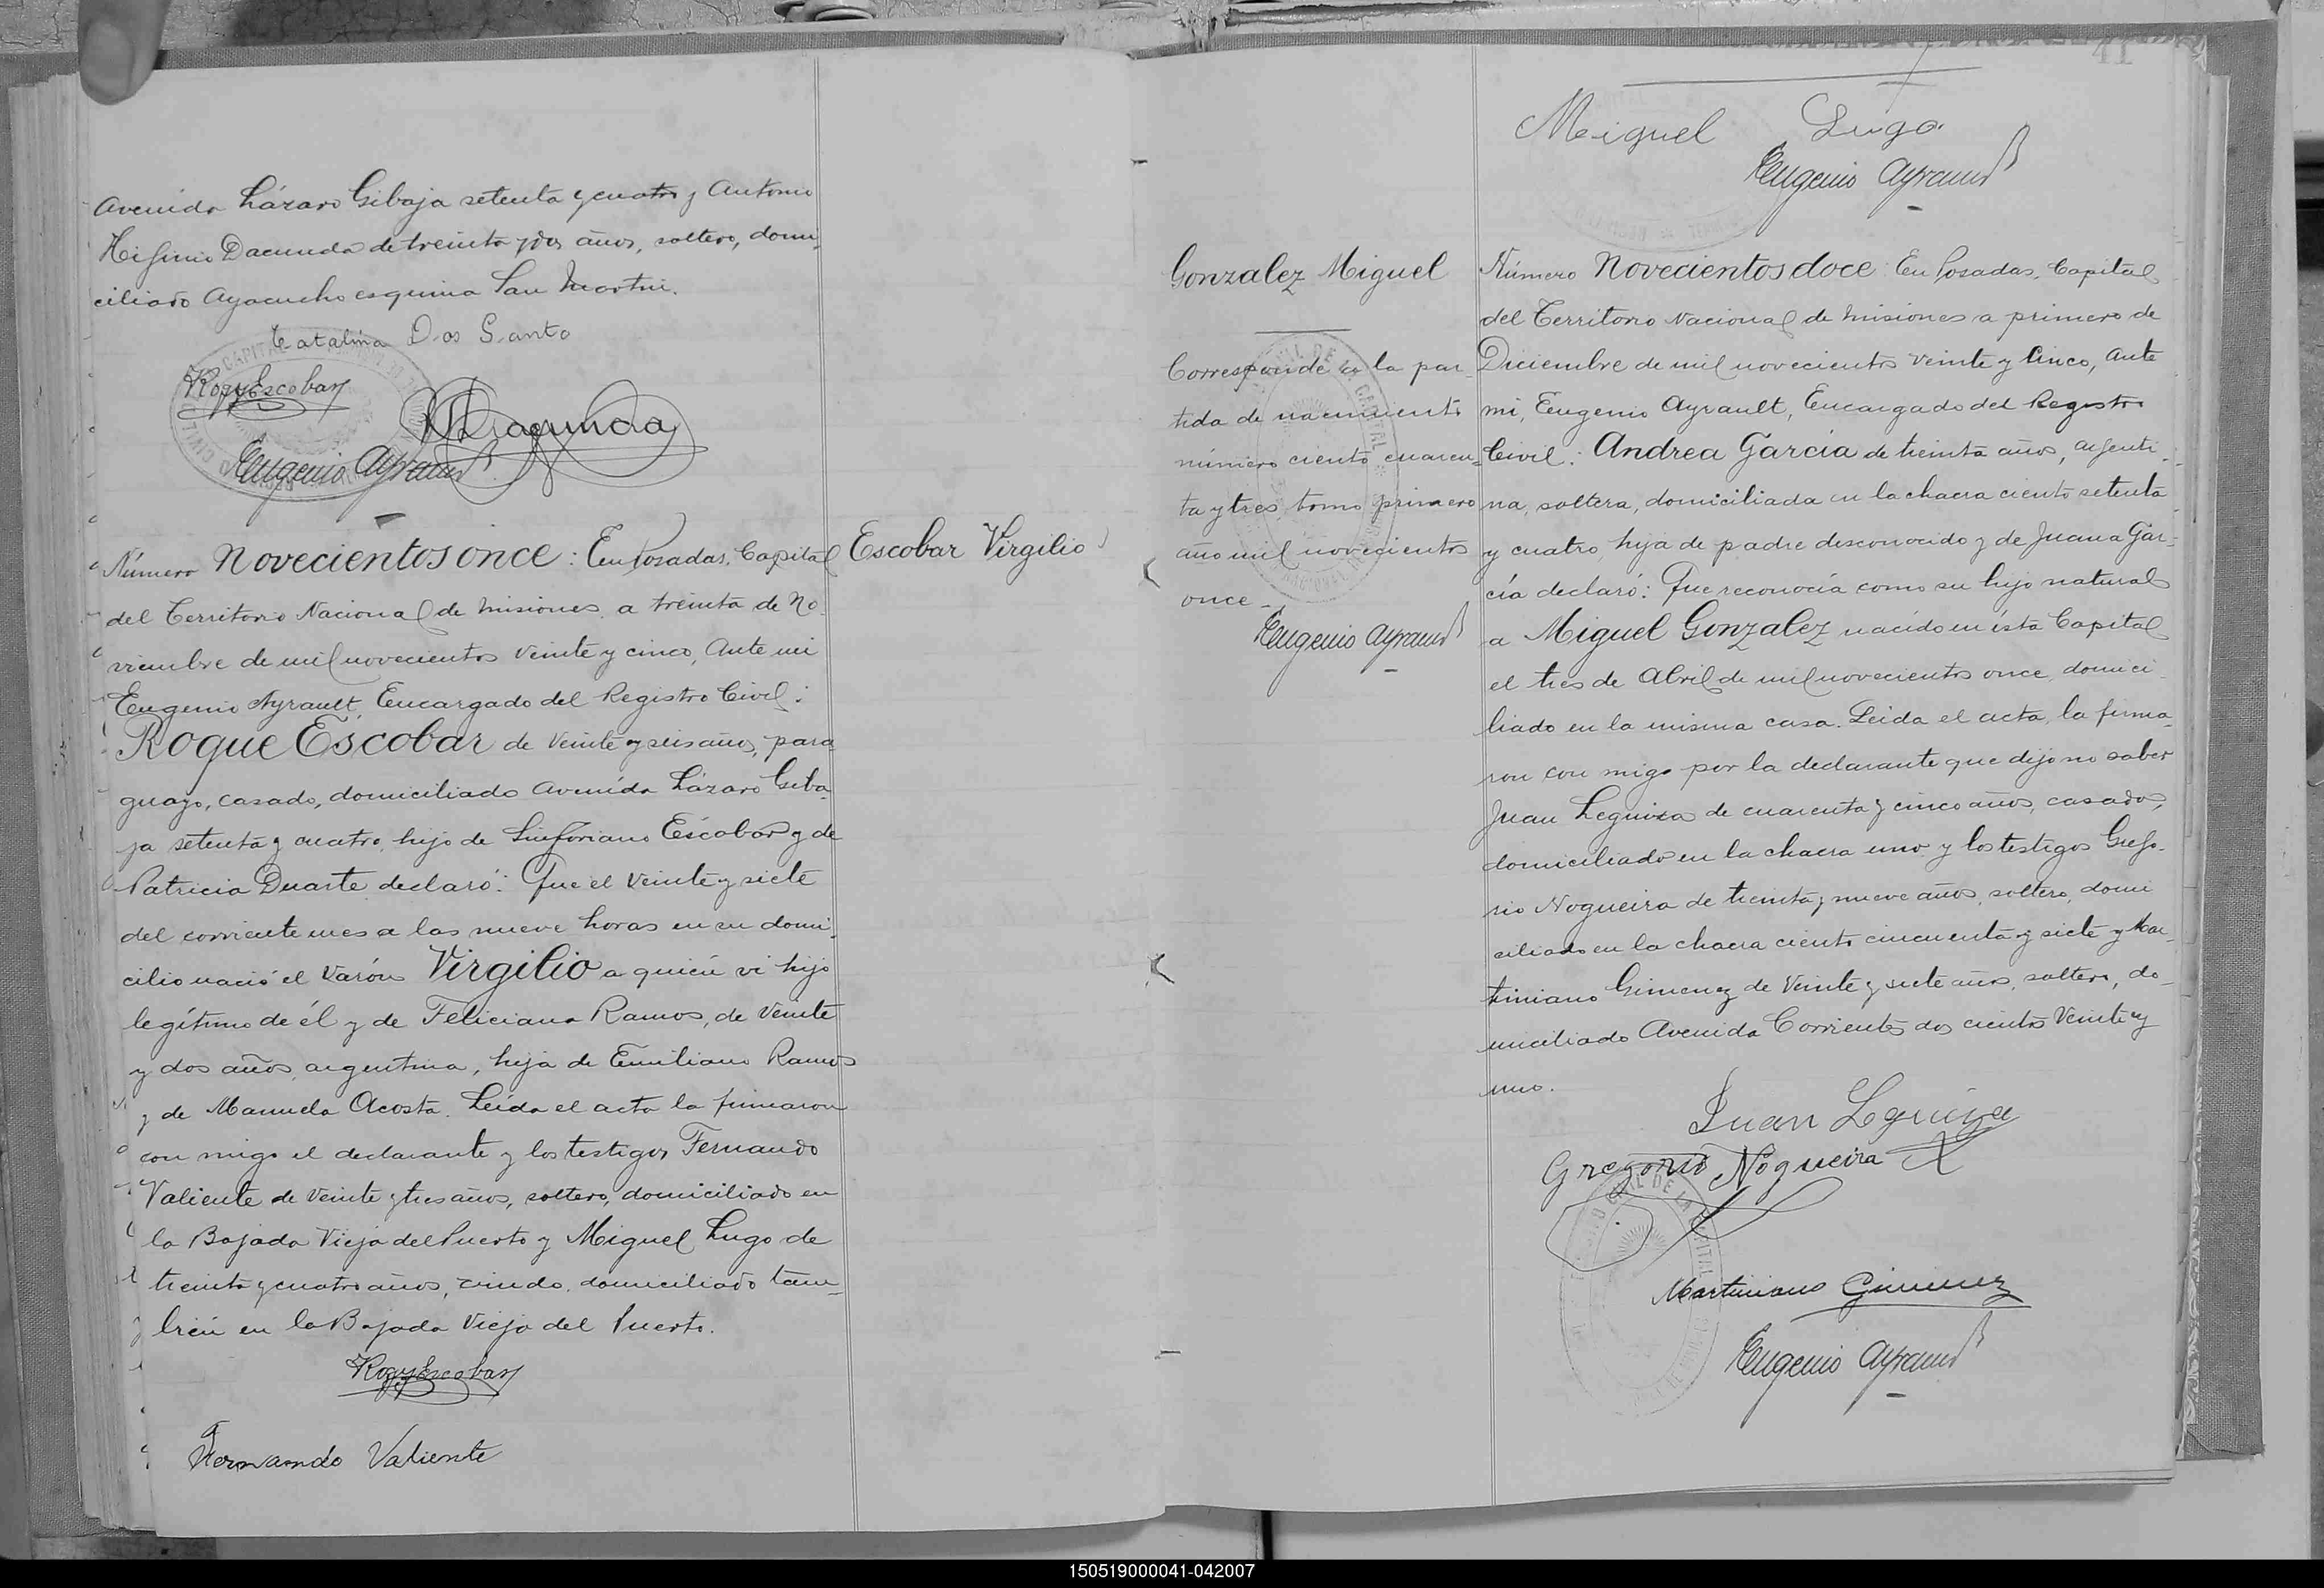 Avenida Lázaro Gibaja setenta y cuatro y Antonio
Higinio Dacunda de treinta y dos años, soltero, domi-
ciliado Ayacucho esquina San Martin.
Catalina Dos Santo
Roq Escobar
Dacunda
Eugenio Ayrault
Número Novecientos once: En Posadas, Capital
del Territorio Nacional de Misiones a treinta de No-
viembre de mil novecientos veinte y cinco, Ante mi
Eugenio Ayrault, Encargado del Registro Civil:
Roque Escobar de veinte y seis años, para-
guayo, casado, domiciliado Avenida Lázaro Giba-
ja setenta y cuatro, hijo de Sinforiano Escobar y de
Patricia Duarte declaró: Que el veinte y siete
del corriente mes a las nueve horas en su domi-
cilio nació el varón Virgilio a quien vi hijo
legítimo de él y de Feliciana Ramos, de veinte
y dos años, argentina, hija de Emiliano Ramos
y de Manuela Acosta. Leída el acta la firmaron
con migo el declarante y los testigos Fernando
Valiente de veinte y tres años, soltero, domiciliado en
la Bajada Vieja del Puerto y Miguel Lugo de
treinta y cuatro años, viudo, domiciliado tam-
bien en la Bajada Vieja del Puerto.
Roq Escobar
Fernando Valiente
Escobar Virgilio
41
Miguel Lugo
Eugenio Ayrault
Gonzalez Miguel
Corresponde a la par-
tida de nacimiento
número ciento cuaren-
ta y tres, tomo primero
año mil novecientos
once.
Eugenio Ayrault
Número Novecientos doce: En Posadas, Capital
del Territorio Nacional de Misiones a primero de
Diciembre de mil novecientos veinte y cinco, Ante
mi, Eugenio Ayrault, Encargado del Registro
Civil: Andrea García de treinta años, argenti-
na, soltera, domiciliada en la chacra ciento setenta
y cuatro, hija de padre desconocido y de Juana Gar-
cía declaró: Que reconocía como su hijo natural
a Miguel Gonzalez nacido en ésta Capital
el tres de Abril de mil novecientos once, domici-
liado en la misma casa. Leida el acta, la firma-
ron con migo por la declarante que dijo no saber
Juan Leguiza de cuarenta y cinco años, casado,
domiciliado en la chacra uno y los testigos Grego-
rio Nogueira de treinta y nueve años, soltero, domi
ciliado en la chacra ciento cincuenta y siete y Mar-
tiniano Gimenez de veinte y siete años, soltero, do-
miciliado Avenida Corrientes dos cientos veinte y
uno.
Juan Leguiza
Gregorio Nogueira
Martiniano Gimenez
Eugenio Ayrault
150519000041-042007